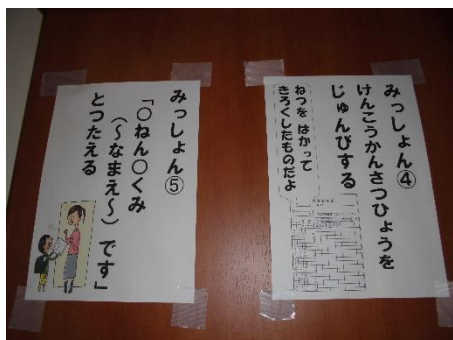 みっしょん④
けんこうかんさつひょうを
じゅんびする
ねつを はかって
きろくしたものだよ
みっしょん⑤
「○ねん○くみ
（～なまえ～）です」
とつたえる